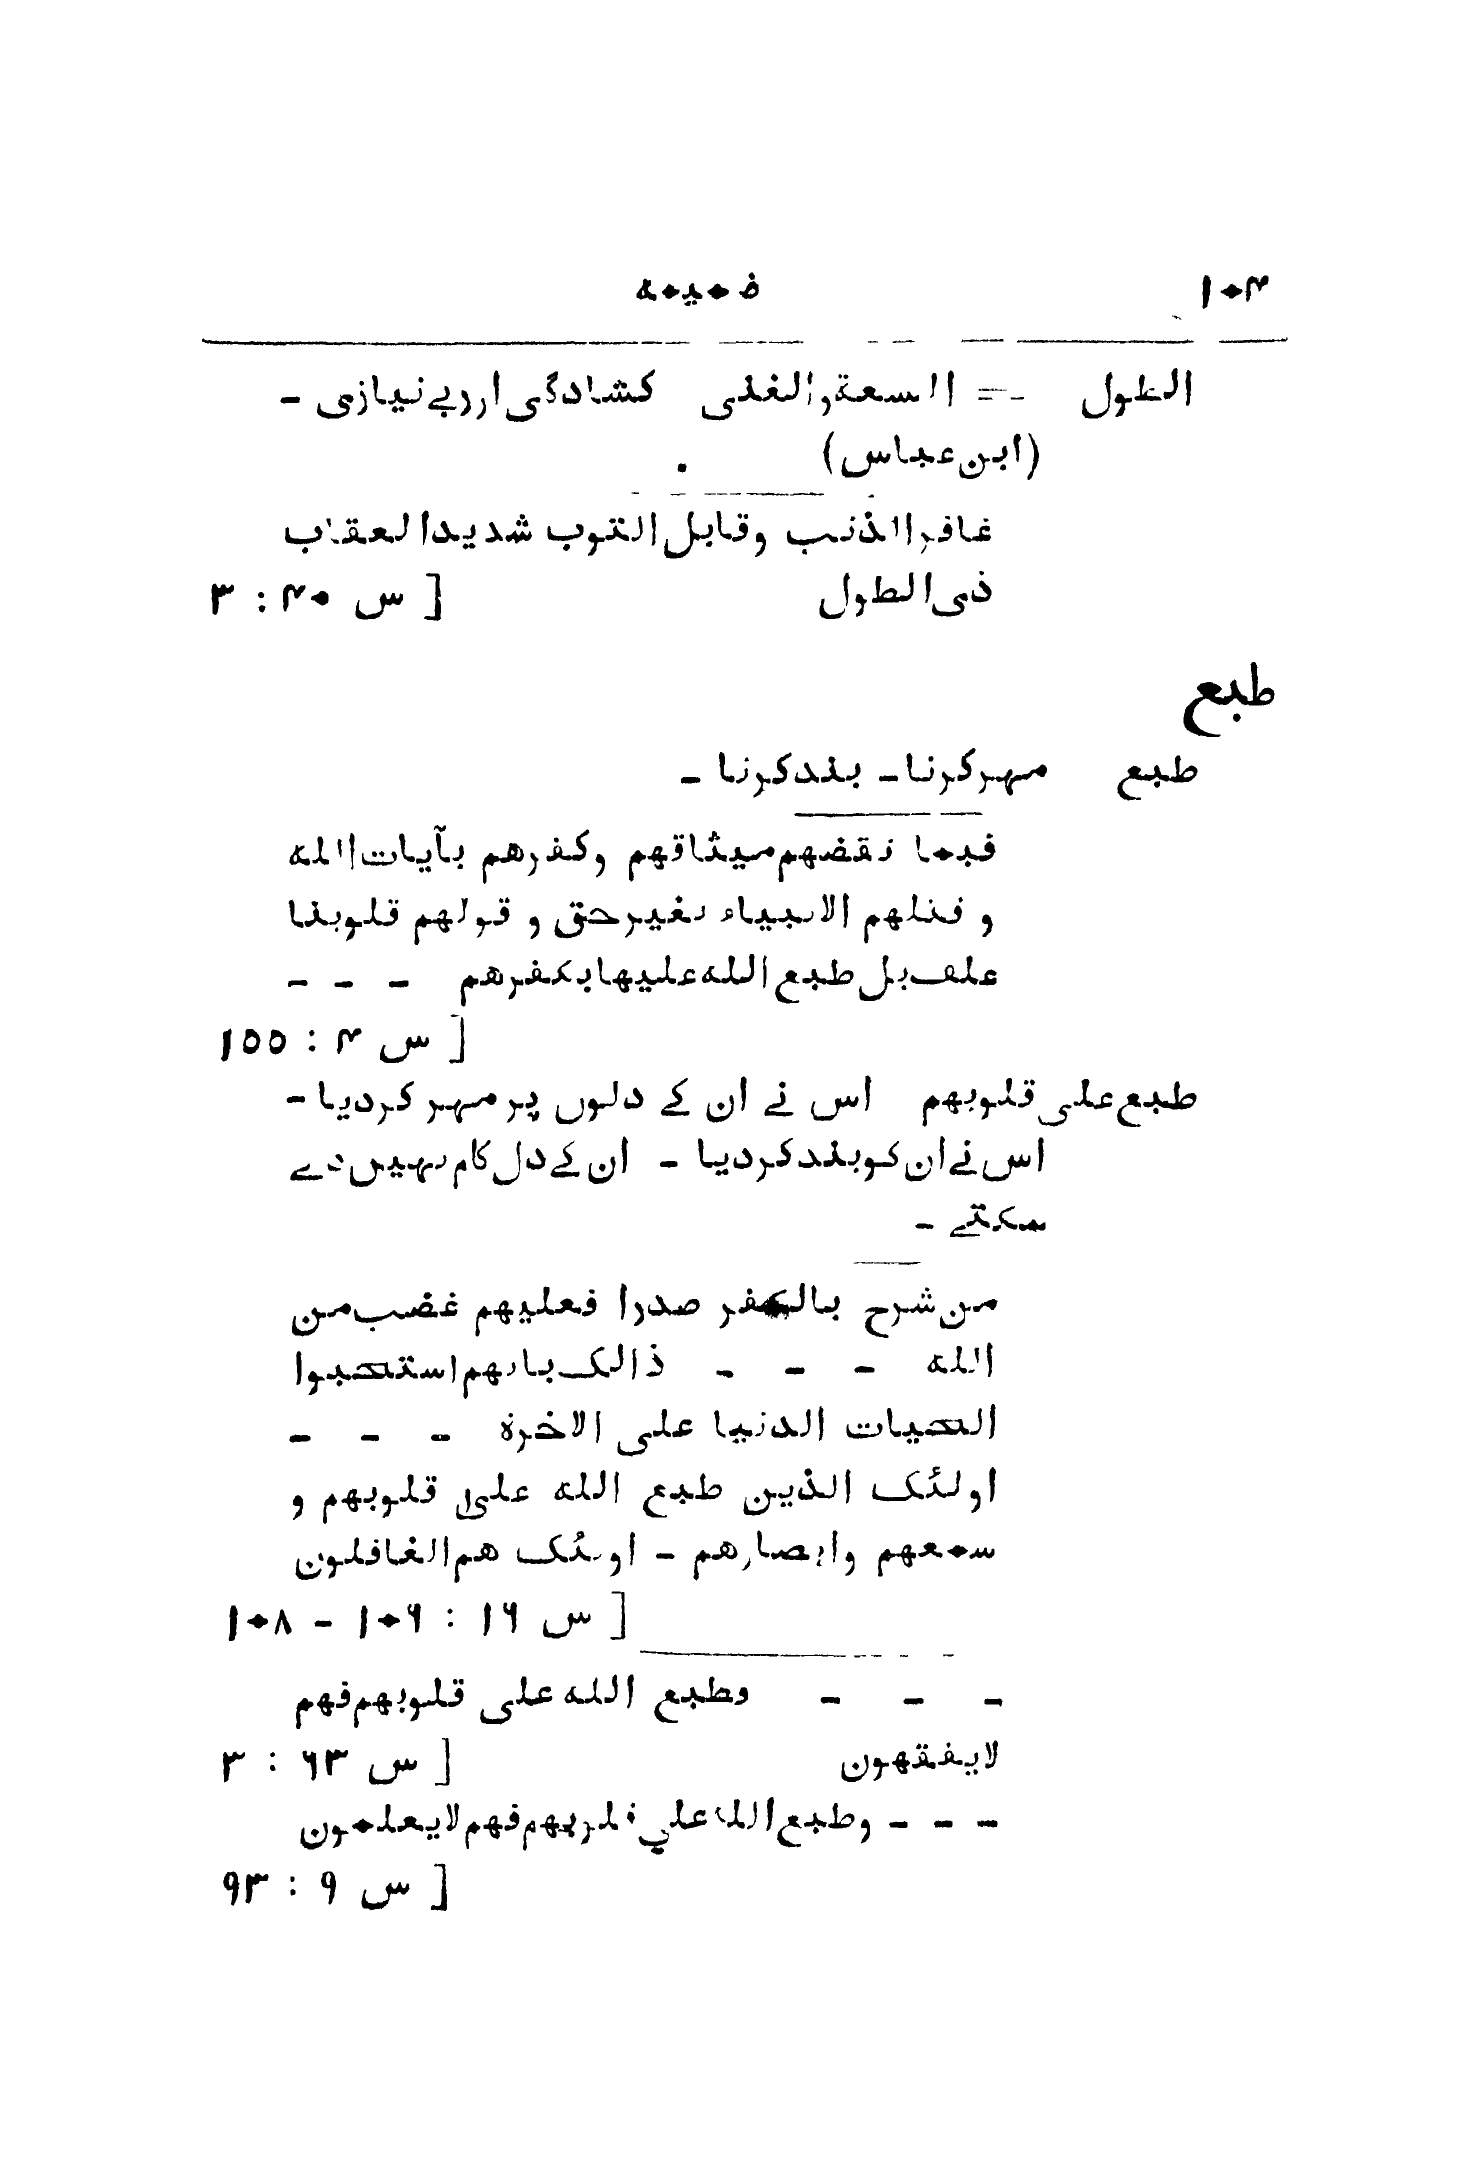 ۱۰۴ ضمیمہ
الطول = السعة والغنی کشادگی اور بے نیازی -
(ابن عباس)
غافر الذنب وقابل التوب شدید العقاب
ذی الطول [ س ۴۰ : ۳
طبع
طبع مہر کرنا - بند کرنا -
فبما نقضهم میثاقهم وکفرهم بآیات الله
و قتلهم الانبیاء بغیر حق و قولهم قلوبنا
غلف بل طبع الله علیها بکفرهم - - -
[ س ۴ : ۱۵۵
طبع علی قلوبهم اس نے ان کے دلوں پر مہر کر دیا -
اس نے ان کو بند کر دیا - ان کے دل کام نہیں دے
سکتے -
من شرح بالکفر صدرا فعلیهم غضب من
الله - - - ذالک بانهم استحبوا
الحیات الدنیا علی الاخرة - - -
اولئک الذین طبع الله علی قلوبهم و
سمعهم وابصارهم - اولئک هم الغافلون
[ س ۱۶ : ۱۰۶ - ۱۰۸
- - - وطبع الله علی قلوبهم فهم
لا یفقهون [ س ۶۳ : ۳
- - - وطبع الله علی قلوبهم فهم لا یعلمون
[ س ۹ : ۹۳